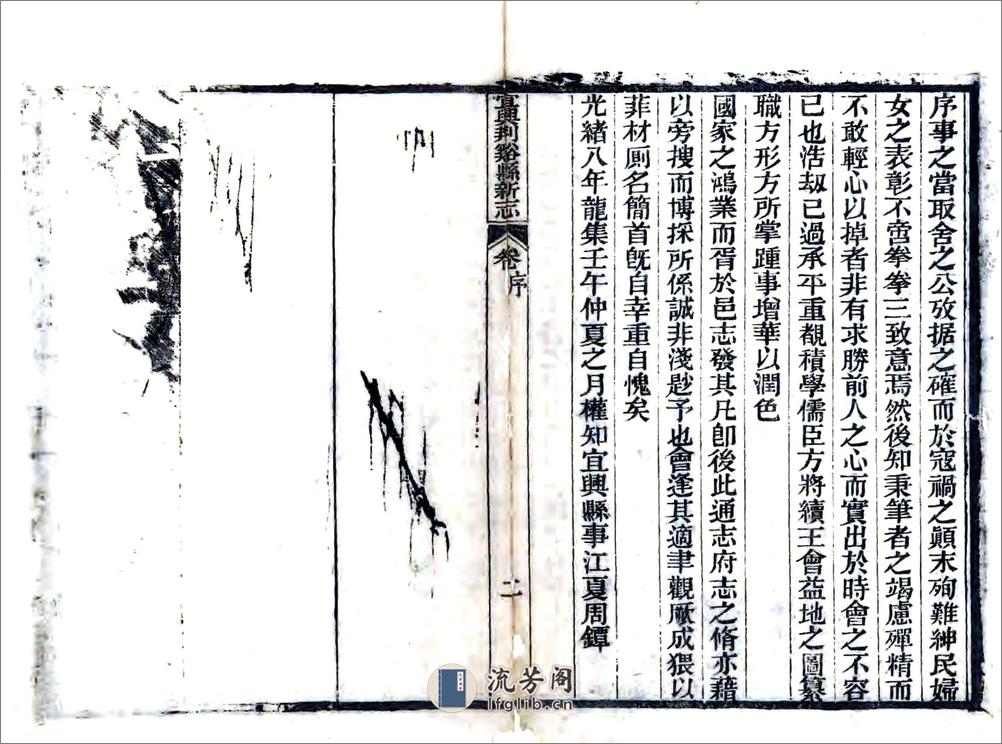 序事之當取舍之公攷据之確而於寇禍之顚末殉難紳民婦
女之表彰不啻拳拳三致意焉然後知秉筆者之竭慮殫精而
不敢輕心以掉者非有求勝前人之心而實出於時會之不容
已也浩劫已過承平重覩積學儒臣方將續王會益地之圖纂
職方形方所掌踵事增華以潤色
國家之鴻業而胥於邑志發其凡卽後此通志府志之脩亦藉
以旁搜而博採所係誠非淺尟予也會逢其適聿觀厥成猥以
菲材厠名簡首旣自幸重自愧矣
光緒八年龍集壬午仲夏之月權知宜興縣事江夏周鐔
宜興荆谿縣新志
卷序
二
流芳阁
lfglib.cn